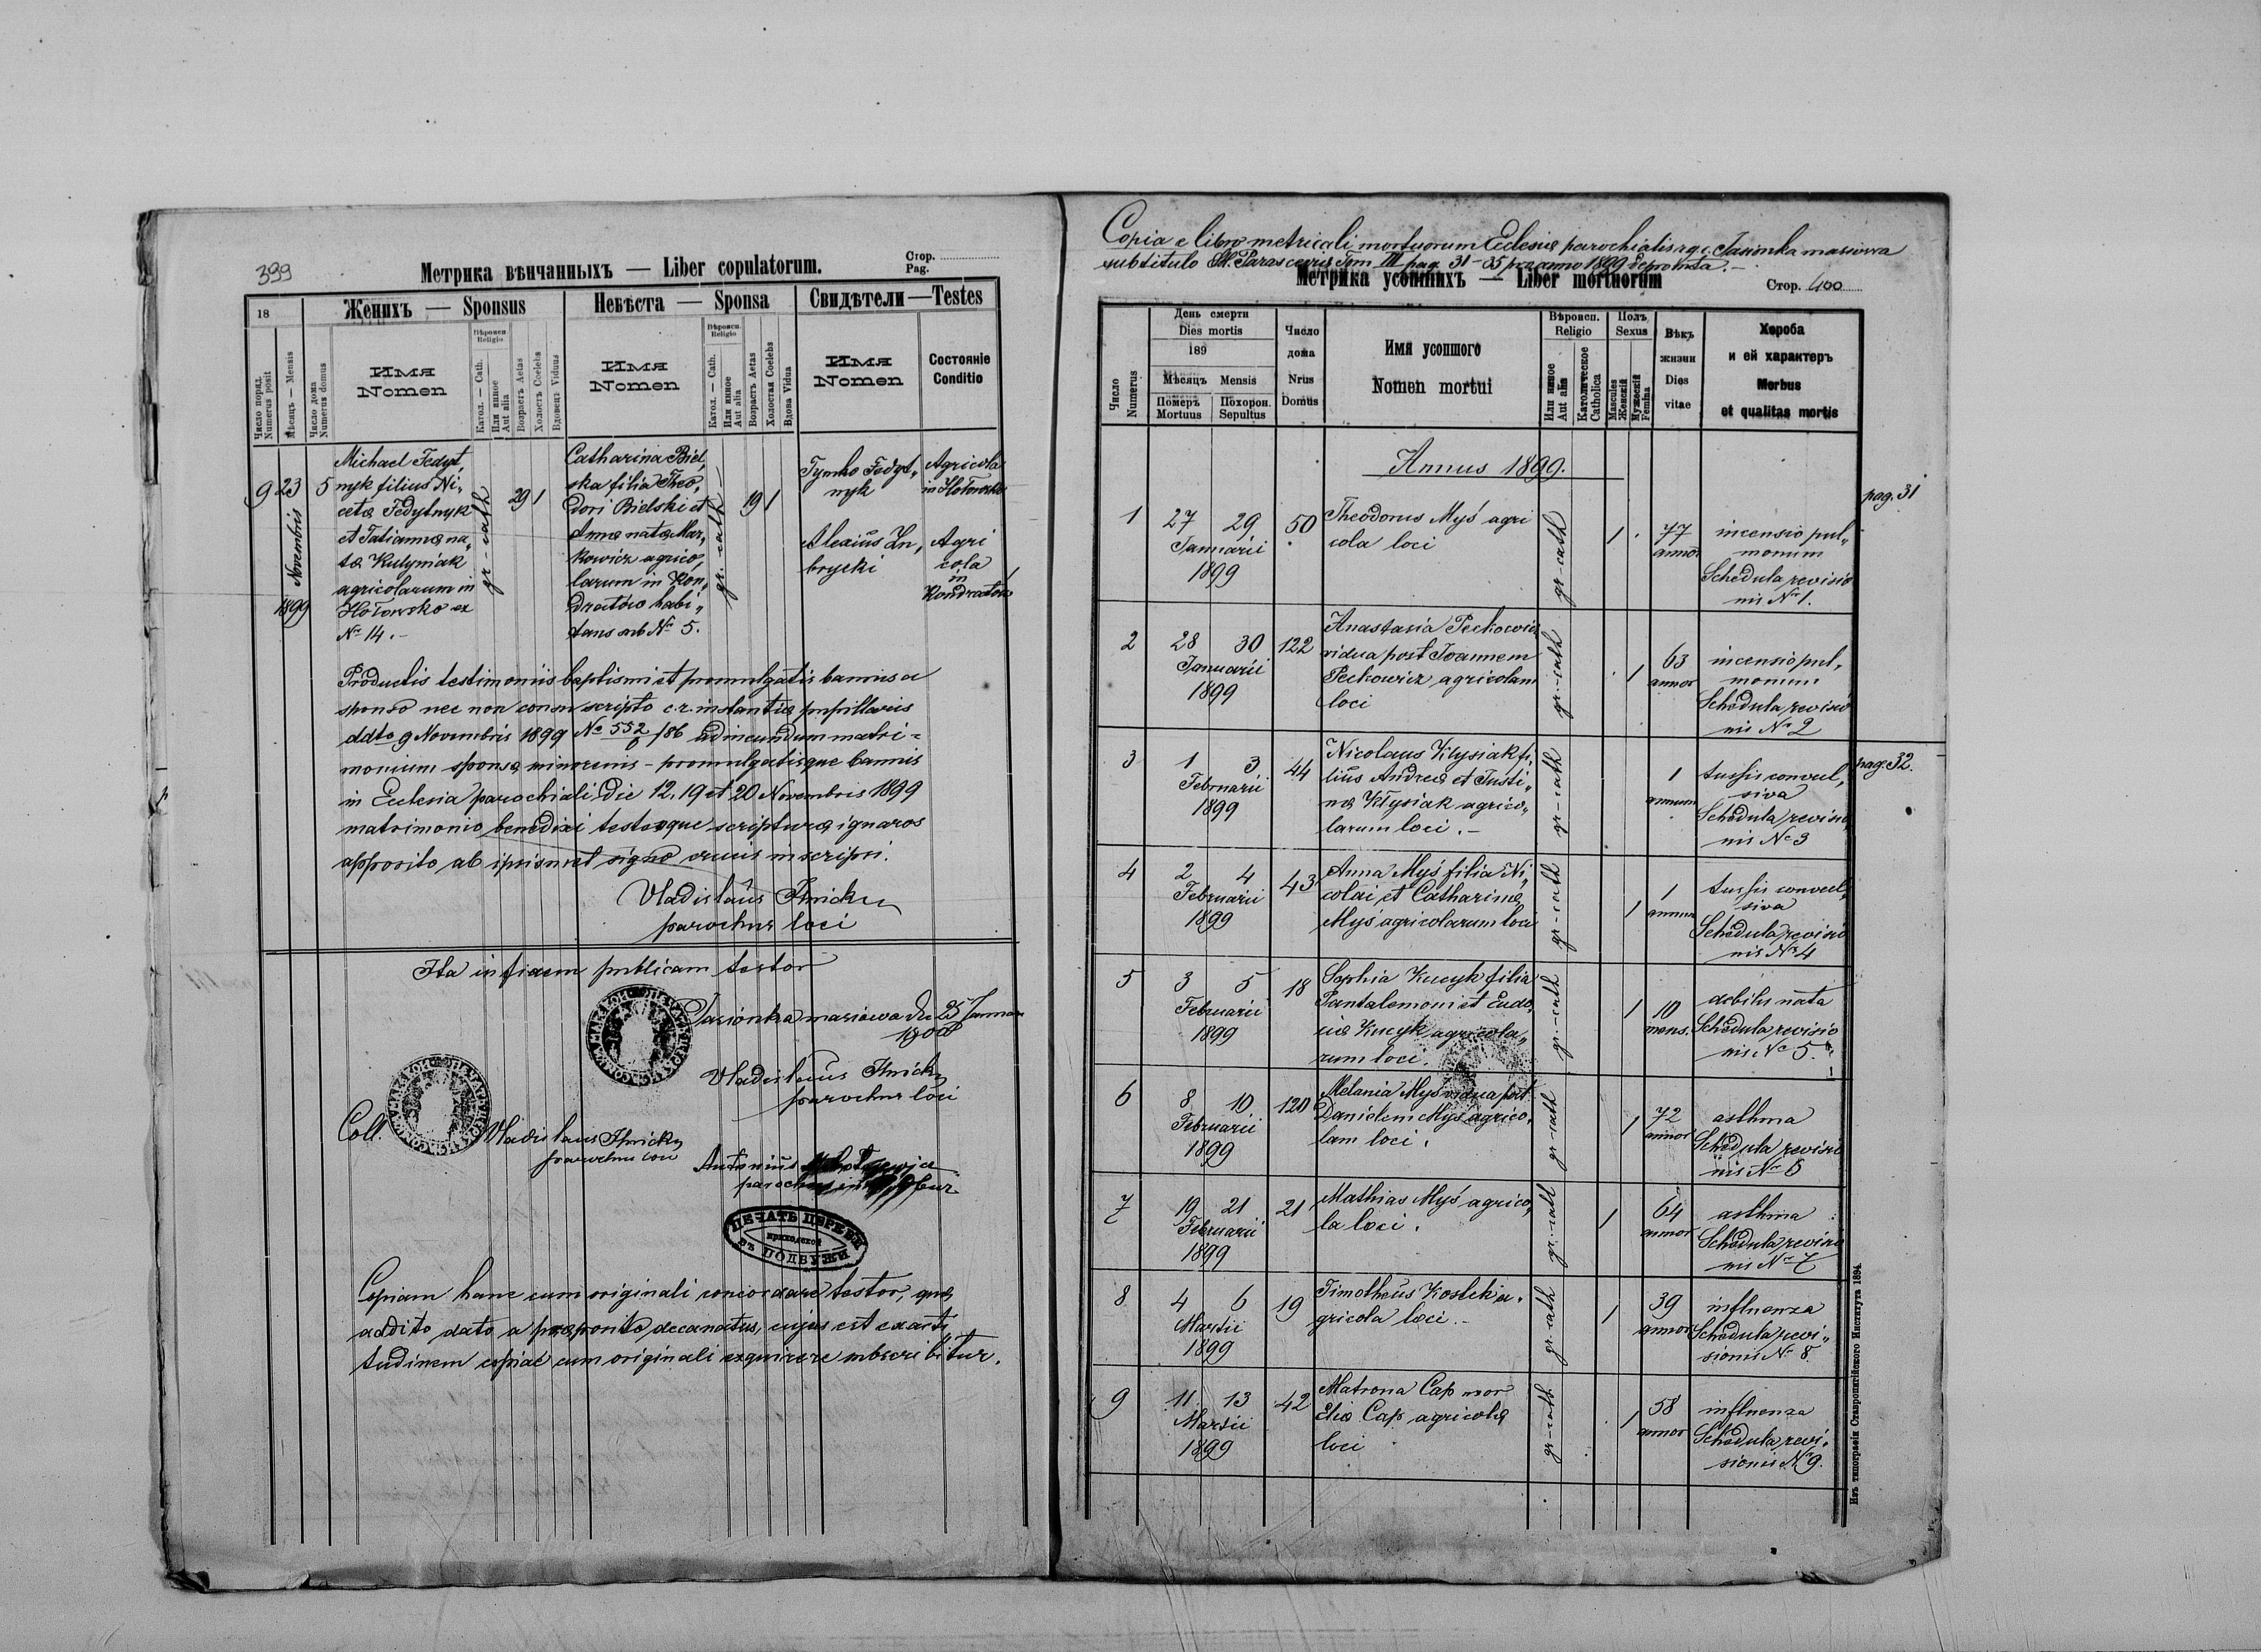 399
Метрика вѣнчанныхъ — Liber copulatorum.
Стор.
Pag.
18
Женихъ — Sponsus
Невѣста — Sponsa
Свидѣтели — Testes
Число поряд.
Numerus posit
Мѣсяцъ — Mensis
Число дома
Numerus domus
Имя
Nomen
Вѣроисп.
Religio
Катол. — Cath.
Или иное
Aut alia
Возрастъ Aetas
Холостъ Coelebs
Вдовецъ Viduus
Имя
Nomen
Вѣроисп.
Religio
Катол. — Cath.
Или иное
Aut alia
Возрастъ Aetas
Холостая Coelebs
Вдова Vidua
Имя
Nomen
Состояніе
Conditio
9
23
Novembris
1899
5
Michael Fedyt„
nyk filius Ni„
cetae Fedytnyk
et Tatianna na„
ta Kulyniak
agricolarum in
Hołowsko ex
Nr 14.-
gr-cath
29
1
Catharina Biel„
ska filia Theo„
dori Bielski et
Anna nata Mar„
kowicz agrico„
larum in Kon„
dratów habi„
tans sub Nr 5.
gr.-cath
19
1
Tymko Fedyt„
nyk
Agricola
in Hołowsko
Alexius
brycki
Agri
cola
in
Kondratów
Productis testimoniis baptismi et promulgatis bannis a
sponso nec non consu scripto c.r. instantia pupillaris
ddto 9 Novembris 1899 No 552/6 /86 ad ineundum matri=
monium sponsa minorenis - promulgatisque bannis
in Ecclesia parochiali die 12, 19 et 20 Novembris 1899
matrimonio benedixi testesque scriptura ignaros
apposito ab ipsismet signo crucis inscripsi.
Vladislaus Ilnicki
parochus loci
Ita in fidem publicam testor
Jasionka masiowa die 25 Januar
1900
Vladislaus Ilnicki
parochus loci
Coll.
Vladislaus Ilnicki
parochus loci
Antonius
parochus
ПЕЧАТЬ ЦЕРКВИ
приходской
ВЪ ПОДБУЖИ
Copiam hanc cum originali concordare testor, quae
addito dato a praeposito decanatus, cujus est exacti
tudinem copiae cum originali exquirere subscribitur.
Copia e libro metricali mortuorum Eclesiae parochialis r.g.c. Jasionka masiowa
sub titulo St. Parascevis Tom III pag 31-35 pro anno 1899 depromta.-
Метрика усопшихъ — Liber mortuorum
Стор. 400
Число
Numerus
День смерти
Dies mortis
189
Мѣсяцъ Mensis
Померъ
Mortuus
Похорон.
Sepultus
Число
дома
Nrus
Domus
Имя усопшого
Nomen mortui
Вѣроисп.
Religio
Или иное
Aut alia
Католическое
Catholica
Полъ
Sexus
Mascules
Женскій
Мужескій
Femina
Вѣкъ
жизни
Dies
vitae
Хороба
и ей характеръ
Morbus
et qualitas mortis
Annus 1899.
pag. 31
1
27 29
Januarii
1899
50
Theodorus Myś agri
cola loci
gr-cath
1
77
annor
incensio pul„
monum
Schedula revisio
nis Nr 1.
2
28 30
Januarii
1899
122
Anastasia Peckowicz
vidua post Joannem
Peckowicz agricolam
loci
gr.-cath
1
63
annor
incensio pul„
monum
Schedula revisio
nis Nr 2
3
1 3
Februarii
1899
44
Nicolaus Kłysiak fi„
lius Andrea et Justi„
na Kłysiak agrico„
larum loci.-
gr-cath
1
annum
tussis convul„
siva
Schedula revisio
nis Nr 3
pag. 32.
4
2 4
Februarii
1899
43
Anna Myś filia Ni„
colai et Catharina
Myś agricolarum loci
gr-cath
1
1
annum
tussis convul„
siva
Schedula revisio
nis Nr 4
5
3 5
Februarii
1899
18
Sophia Kucyk filia
Pantalemoni et Eudo„
cia Kucyk agricola„
rum loci.
gr.-cath
1
10
mens.
debilis nata
Schedula revisio
nis Nr 5.
6
8 10
Februarii
1899
120
Melania Myś vidua post
Danielem Myś agrico„
lam loci.
gr-cath
1
72
annor
asthma
Schedula revisio
nis Nr 6
7
19 21
Februarii
1899
21
Mathias Myś agrico„
la loci.
gr.-cath
1
64
annor
asthma
Schedula revisio
nis Nr 7
8
4 6
Martii
1899
19
Timotheus Kostek a„
gricola loci.-
gr-cath
1
39
annor
influenza
Schedula revi„
sionis Nr 8.
9
11 13
Martii
1899
42
Matrona Cap uxor
Elia Cap agricola
loci
gr-cath
1
58
annor
influenza
Schedula revi„
sionis Nr 9.
Изъ типографіи Ставропигійского Института 1894.